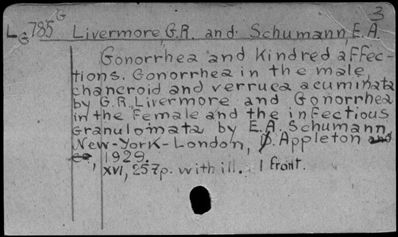 3
L785 G Livermore, G.R. and Schumann, E.A.
G
Gonorrhea and kindred affec-
tions. Gonorrhea in the male
chancroid and verruca acuminata
by G.R. Livermore and Gonorrhea
in the female and the infectious
granulomata by E.A. Schumann
New-York-London, D. Appleton and
co, 1929.
XVI, 257p. with ill. 1 front.